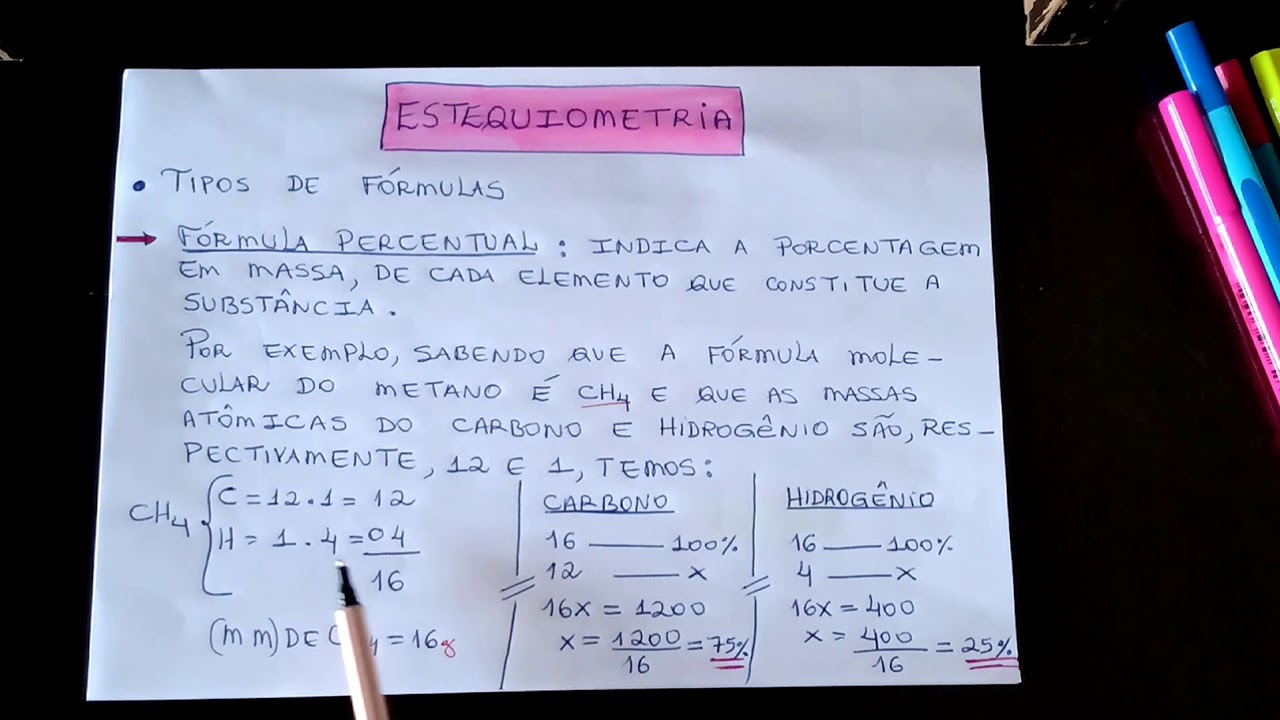 ESTEQUIOMETRiA
• TIPOS DE FÓRMULAS
→ FÓRMULA PERCENTUAL : INDICA A PORCENTAGEM
EM MASSA, DE CADA ELEMENTO QUE CONSTITUE A
SUBSTÂNCIA.
POR EXEMPLO, SABENDO QUE A FÓRMULA MOLE-
CULAR DO METANO É CH4 E QUE AS MASSAS
ATÔMICAS DO CARBONO E HIDROGÊNIO SÃO, RES-
PECTIVAMENTE, 12 E 1, TEMOS:
CH4
C = 12 . 1 = 12
H = 1 . 4 = 04
16
(mm) DE = 16g
CARBONO
16 — 100%
12 — X
16X = 1200
X = 1200 = 75%
16
HIDROGÊNIO
16 — 100%
4 — X
16X = 400
X = 400 = 25%
16